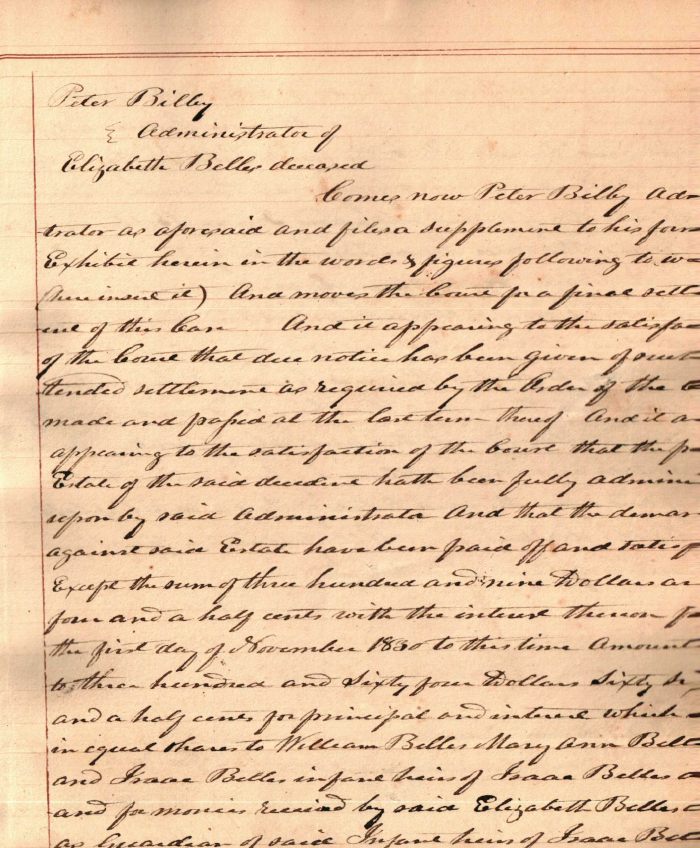 Peter Bilby
} Administrator of
Elizabeth Belles deceased
Comes now Peter Bilby Ad-
trator as aforesaid and files a supplement to his for
Exhibit herein in the words & figures following to w
(here insert it) And moves the Court for a final settl
ent of this Case And it appearing to the satisfac
of the Court that due notice has been given of such
tended settlement as required by the Order of the C
made and passed at the last term thereof And it a
appearing to the satisfaction of the Court that the p
Estate of the said decedent hath been fully admini
upon by said Administrator And that the deman
against said Estate have been paid off and satisf
Except the sum of three hundred and nine Dollars an
four and a half cents with the interest thereon f
the first day of November 1830 to this time Amount
to three hundred and Sixty four Dollars Sixty Si
and a half cents for principal and interest which
in equal shares to William Belles Mary Ann Bell
and Isaac Belles infant heirs of Isaac Belles
and for monies received by said Elizabeth Belles
as Guardian of said Infant heirs of Isaac Bel